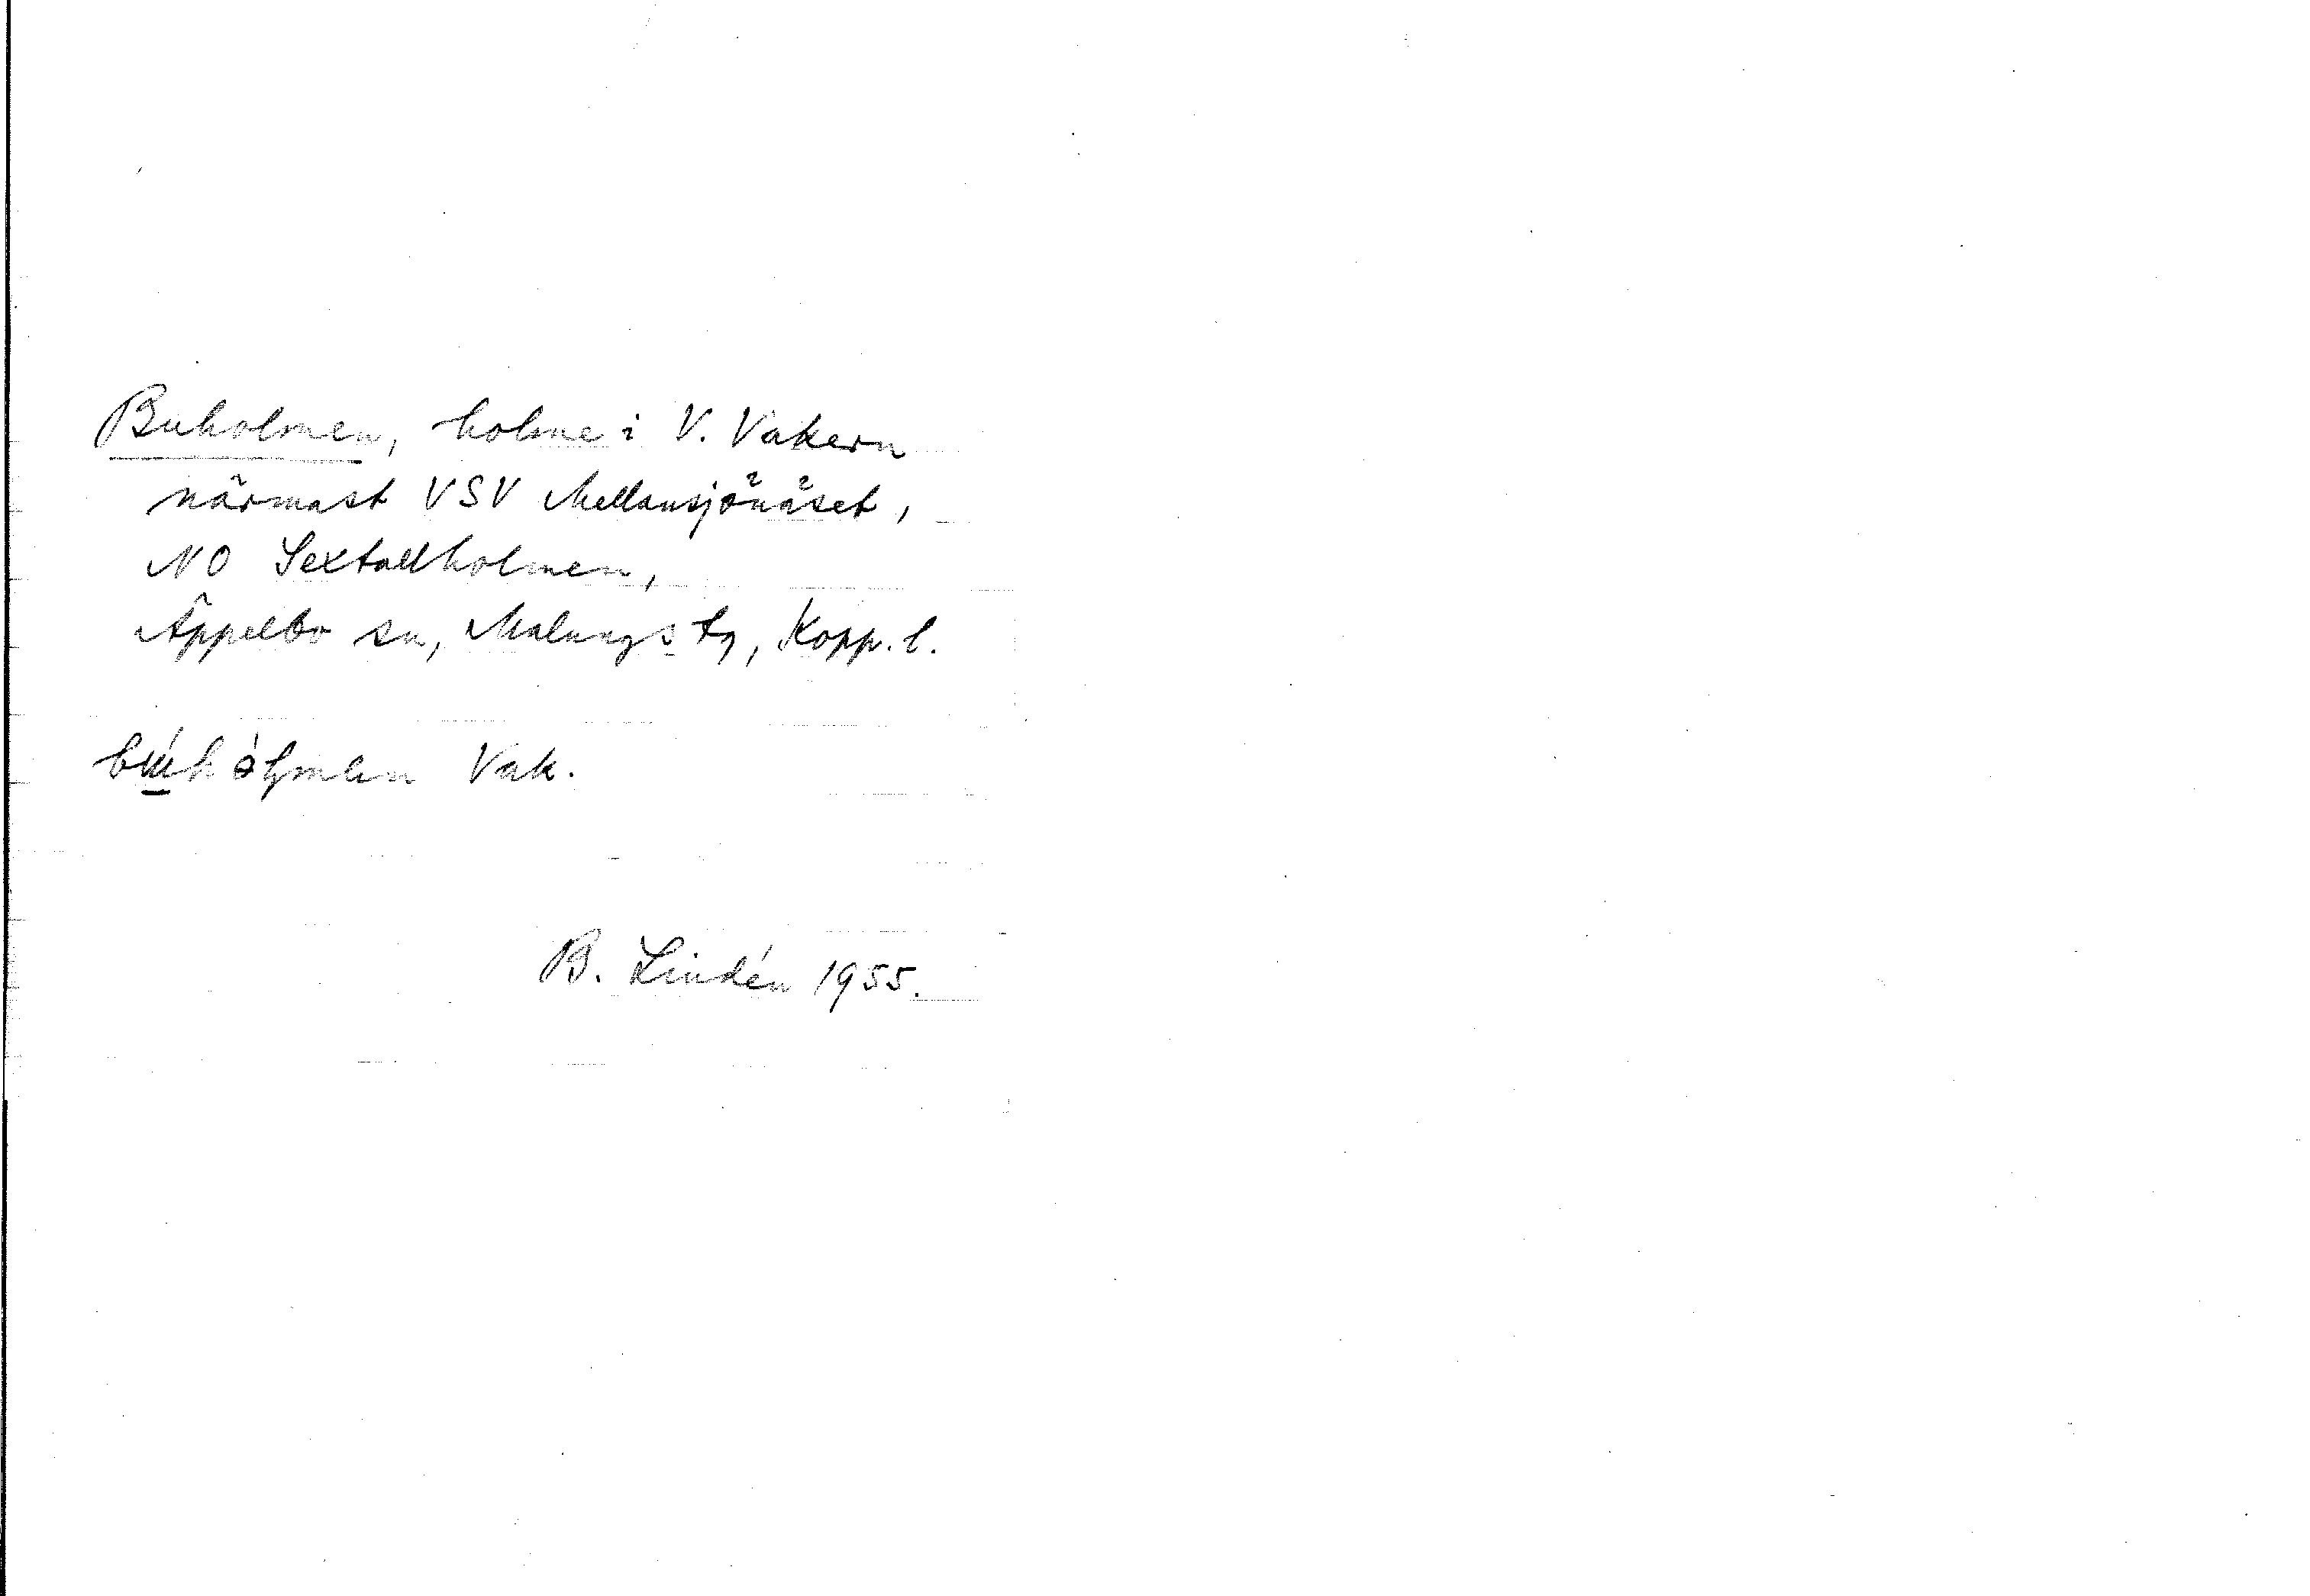 Buholmen, holme i V. Vakern
närmast VSV Mellansjönäset,
NO Sextallholmen,
Äppelbo sn, Malungs tg, Kopp. l.
Vak.
B. Lindén 1955.